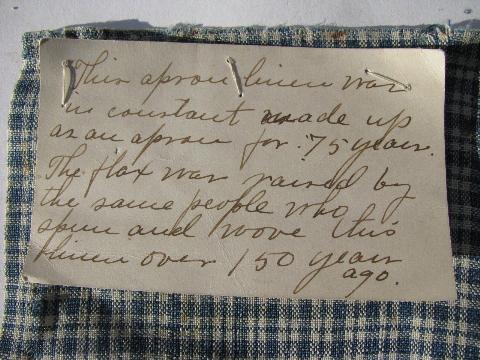 This apron linen was
in constant made up
as an apron for 75 years.
The flax was raised by
the same people who
spun and wove this
linen over 150 years
ago.